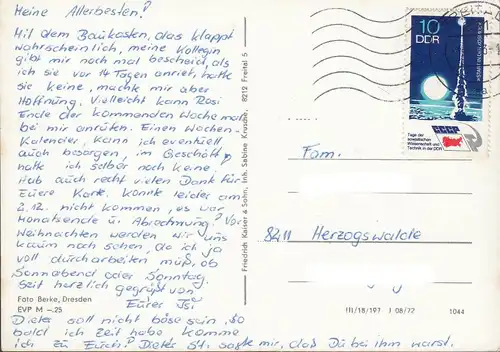 Meine Allerbesten!
Mit dem Baukasten, das klappt
wahrscheinlich, meine Kollegin
gibt mir noch mal bescheid, als
ich sie vor 14 Tagen anrief, hatte
sie keine, machte mir aber
Hoffnung. Vielleicht kann Rosi
Ende der kommenden Woche mal
bei mir anrufen. Einen Wochen-
Kalender, kann ich eventuell
auch besorgen, im Geschäft
hatte ich selber noch keine.
Hab auch recht vielen Dank für
Euere Karte. Konnte leider am
2.12. nicht kommen, es war
Monatsende u. Abrechnung! Vor
Weihnachten werden wir uns
kaum noch sehen, da ich ja
voll durcharbeiten muß, ob
Sonnabend oder Sonntag.
Seid herzlich gegrüßt von
Eurer
Dieter soll nicht böse sein, so
bald ich Zeit habe komme
ich zu Euch! Dieter St. sagte mir, das Du bei ihm warst.
Foto Berke, Dresden
EVP M –.25
Friedrich Kaiser & Sohn, Inh. Sabine Krusche, 8212 Freital 5
10
DDR
CCCP
Tage der
sowjetischen
Wissenschaft und
Technik in der DDR
Fam.
8211 Herzogswalde
III/18/197 J 08/72 1044